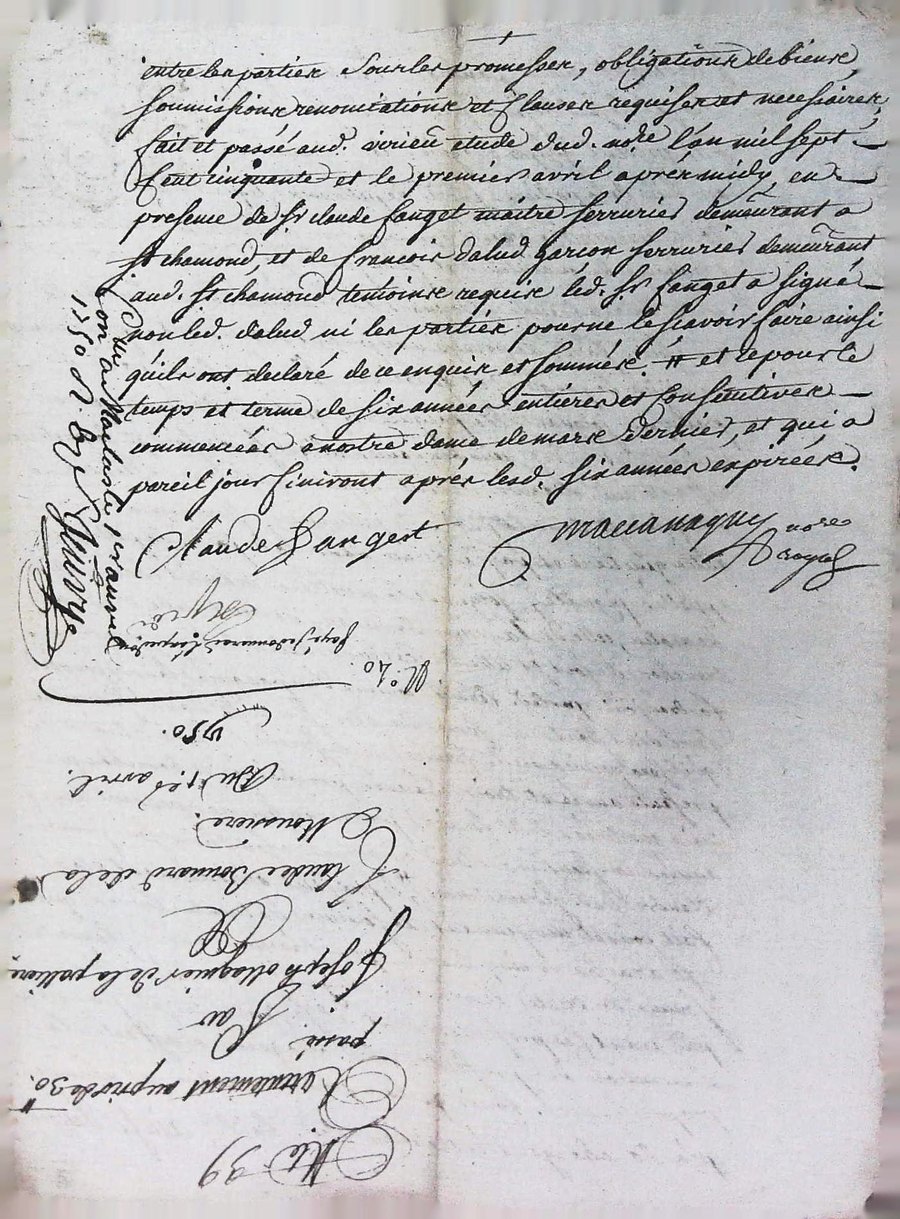 entre les parties sous les promesses, obligations de biens,
soumissions renonciations et clauses requises et necessaires,
fait et passé aud. virieu etude dud. nore. l'an mil sept
cent cinquante et le premier avril aprés midy, en
presence de sr. claude fanget maitre serrurier demeurant a
st chamond, et de francois dalud garçon serrurier demeurant
aud. st chamond temoins requis led. sr. fanget a signé
non led. dalud ni les parties pour ne le scavoir faire ainsi
qu'ils ont declaré de ce enquis et sommés. # et ce pour le
temps et terme de six années entiéres et consecutives
commencées a nostre dame de mars dernier, et qui a
pareil jour finiront aprés lesd. six années expirées.
Claude fanget
nore
royal
Con. a le 1er avril
1750 R.
No. 40
1750.
Du 1er avril.
Mousiere.
Claude Bonnard de la
Joseph de la
Par
passé
au prix de 30.
39